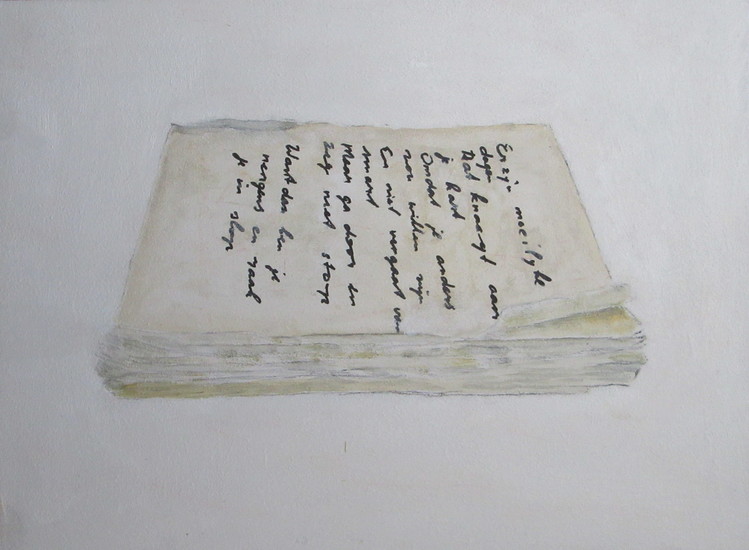 Er zijn moeilijke
dagen
Dat knaagt aan
je hart
Omdat je anders
zou willen zijn
En niet vergaat van
smart
Maar ga door en
zeg niet stop
Want dan ben je
nergens en raak
je in slop